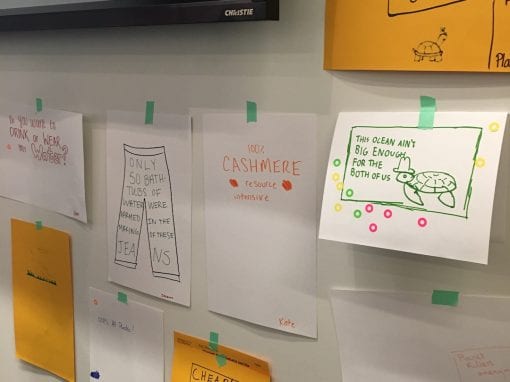 CHRISTIE
Pla
Do you want to
DRINK or WEAR
your Water?
ONLY
50 BATH-
TUBS OF
WATER WERE
HARMED IN THE
MAKING OF THESE
JEANS
100%
CASHMERE
resource
intensive
Kate
THIS OCEAN AIN'T
BIG ENOUGH
FOR THE
BOTH OF US
Planet
Killers